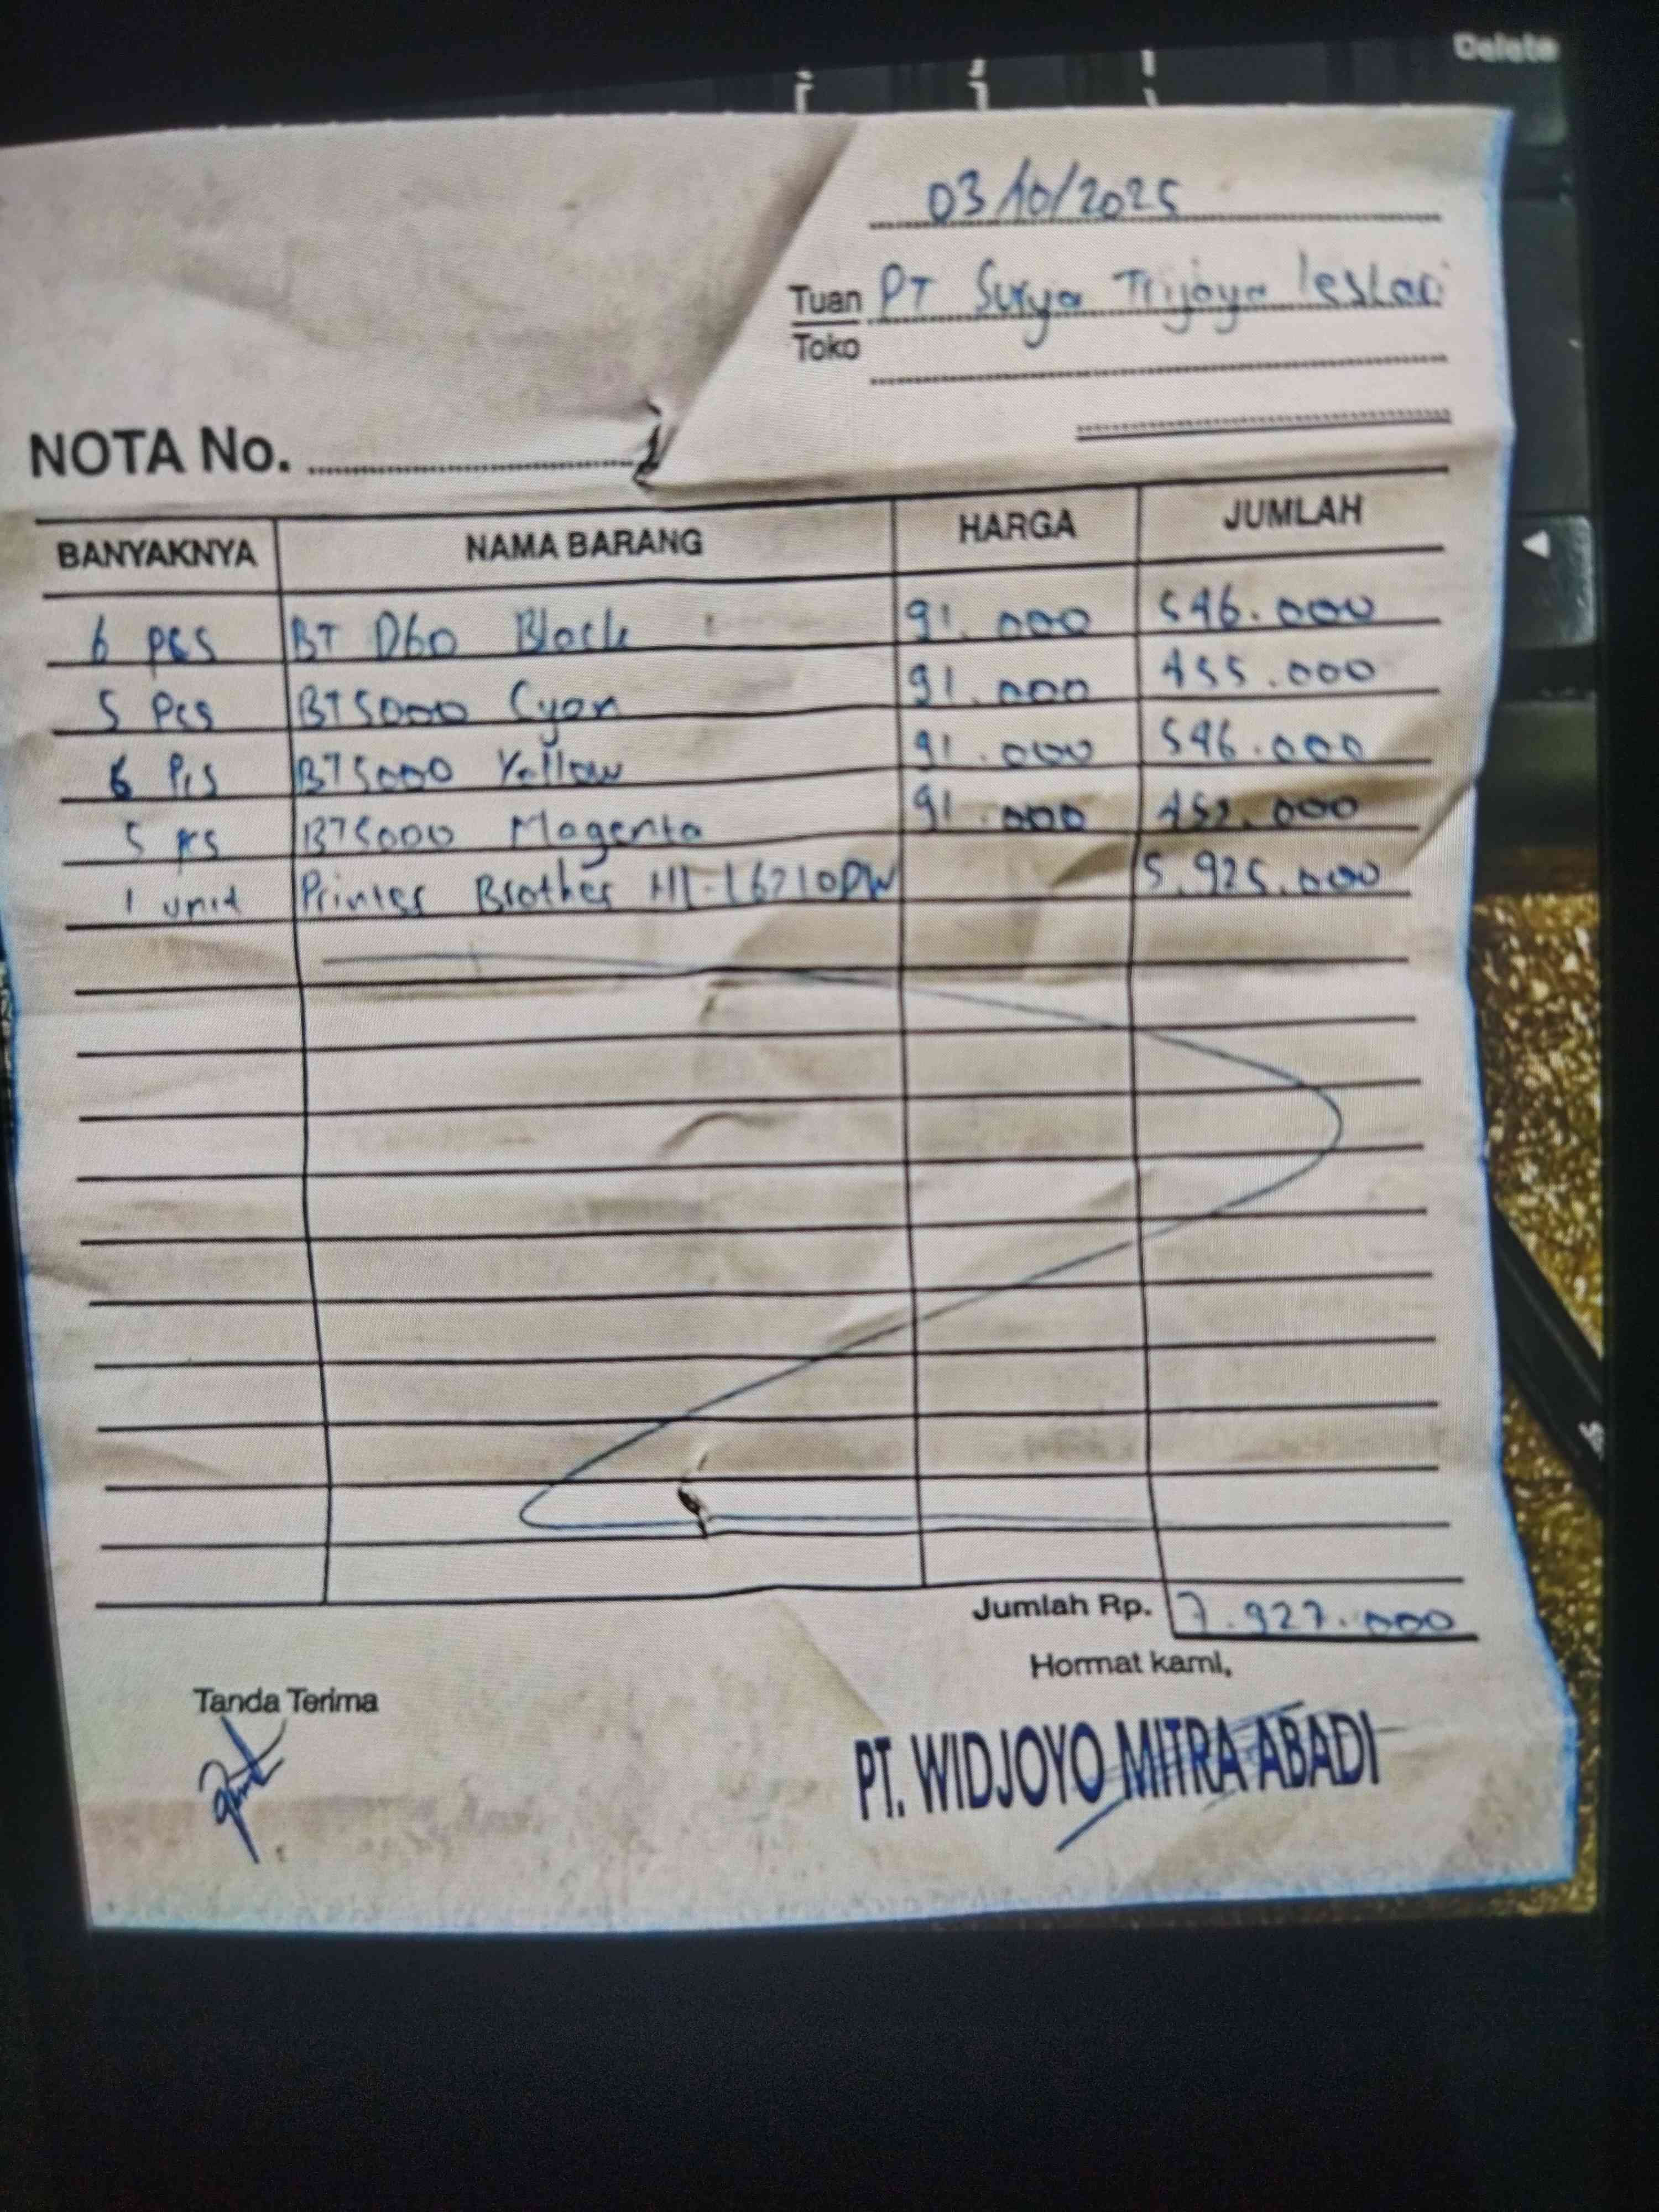 Delete
03/10/2025
Tuan PT Surya Trijaya lestari
Toko
NOTA No.
BANYAKNYA NAMA BARANG HARGA JUMLAH
6 pcs BT D60 Black 91.000 546.000
5 Pcs BT5000 Cyan 91.000 455.000
6 Pcs BT5000 Yellow 91.000 546.000
5 pcs BT5000 Magenta 91.000 .000
1 unit Printer Brother Hl-L6210DW 5.925.000
Jumlah Rp. 7.927.000
Hormat kami,
Tanda Terima
PT. WIDJOYO MITRA ABADI